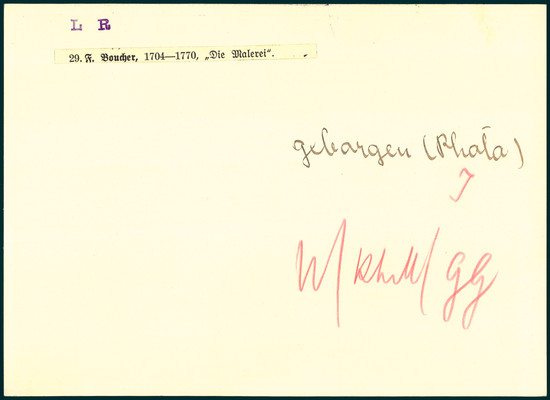 L R
29. F. Boucher, 1704—1770, „Die Malerei“.
geborgen (Rhala)
J
W/ KhM/ GG